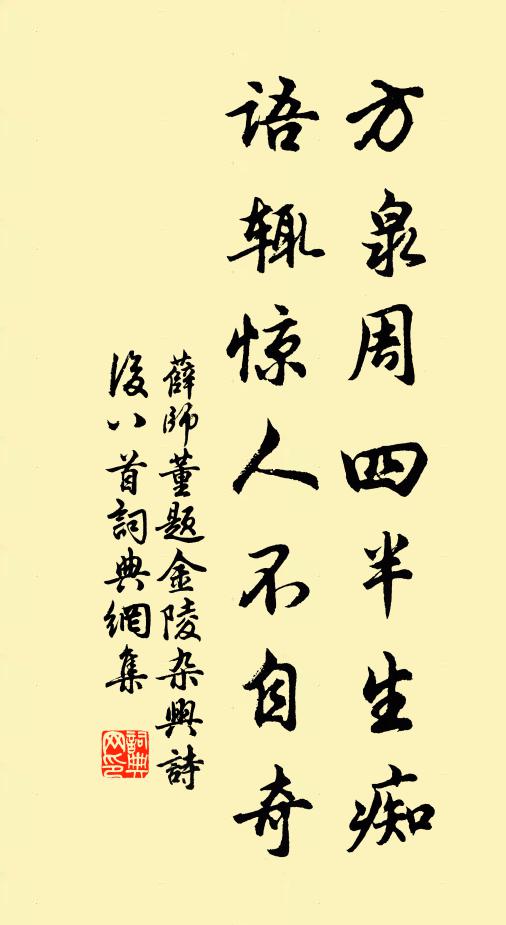 方泉周四半生痴
语辄惊人不自奇
薛师董题金陵杂興詩
後八首詞典網集
詞典
网印